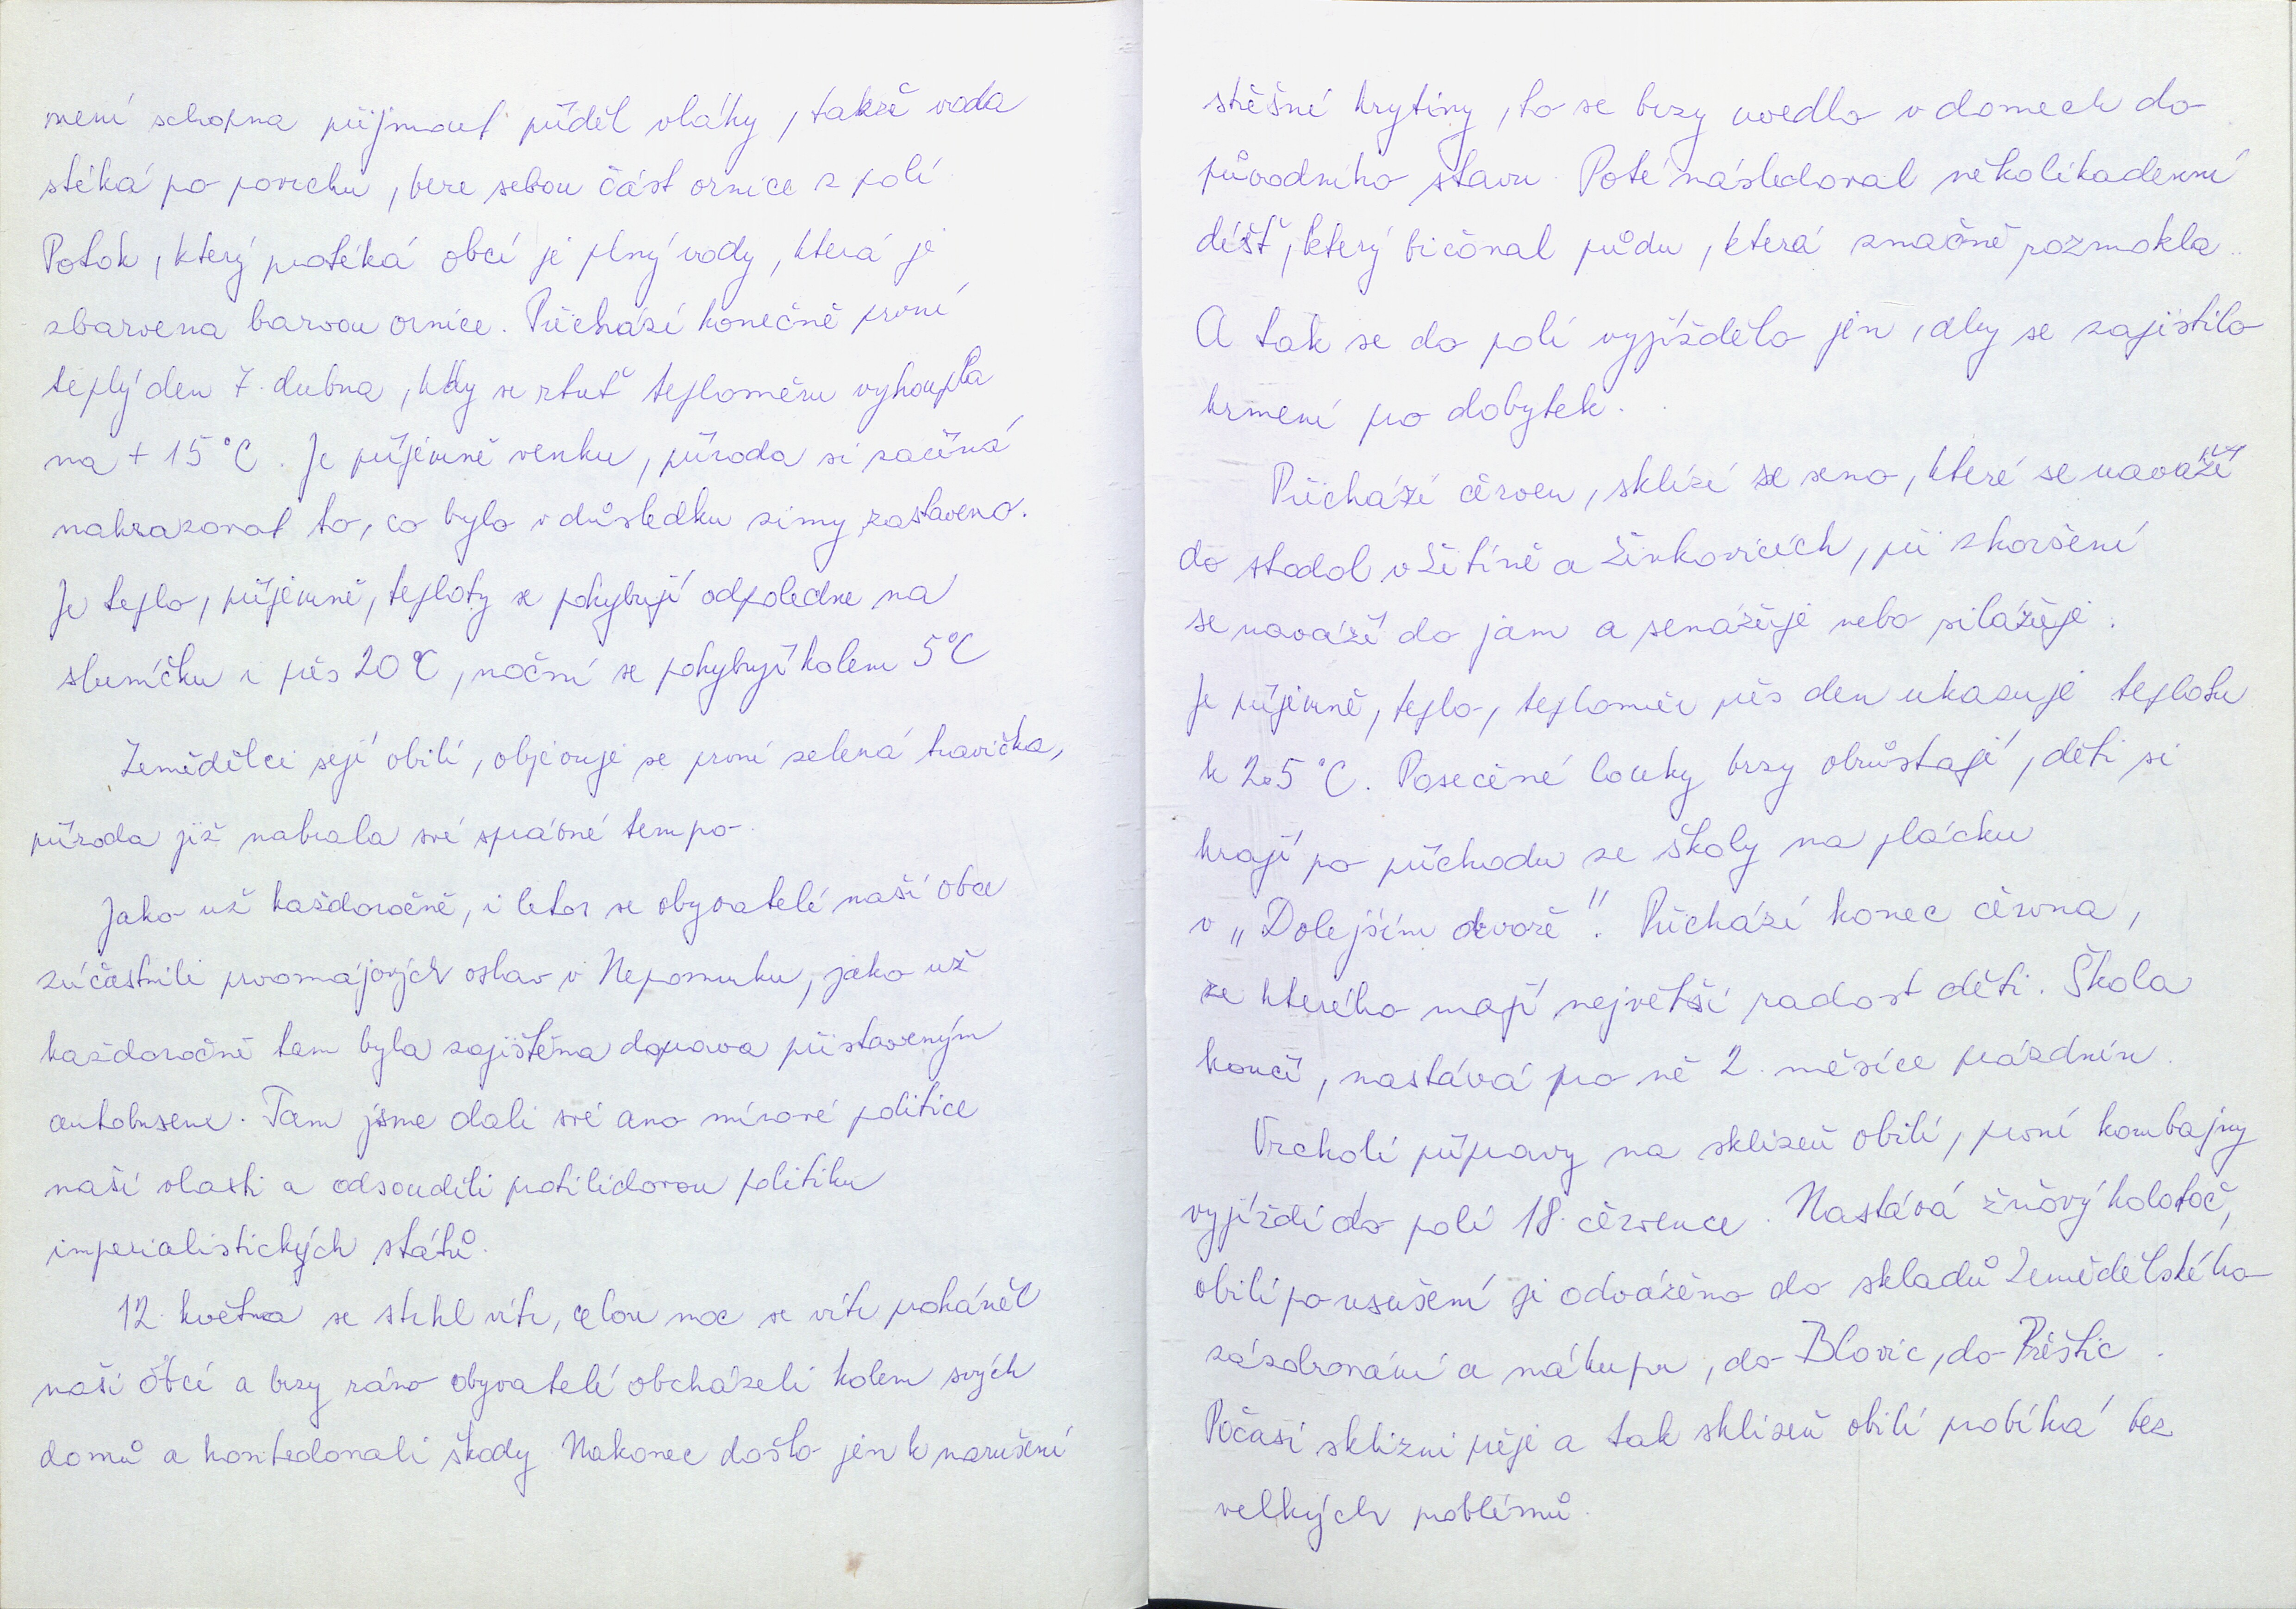 není schopna přijmout příděl vláhy, takže voda
stéká po povrchu, bere sebou část ornice z polí
Potok, který protéká obcí je plný vody, která je
zbarvena barvou ornice. Přichází konečně první
teplý den 7. dubna, kdy se rtuť teploměru vyhoupla
na + 15°C. Je příjemně venku, příroda si začíná
nahrazovat to, co bylo v důsledku zimy zastaveno.
Je teplo, příjemně, teploty se pohybují odpoledne na
sluníčku i přes 20°C, noční se pohybují kolem 5°C
Zemědělci sejí obilí, objevuje se první zelená travička,
příroda již nabrala své správné tempo.
Jako už každoročně, i letos se obyvatelé naší obce
zúčastnili prvomájových oslav v Nepomuku, jako už
každoročně tam byla zajištěna doprava přistaveným
autobusem. Tam jsme dali své ano mírové politice
naší vlasti a odsoudili protilidovou politiku
imperialistických států.
12. května se strhl vítr, celou noc se vítr proháněl
naší obcí a brzy ráno obyvatelé obcházeli kolem svých
domů a kontrolovali škody Nakonec došlo jen k narušení
střešní krytiny, to se brzy uvedlo v domech do
původního stavu. Poté následoval několikadenní
déšť, který bičoval půdu, která značně rozmokla.
A tak se do polí vyjíždělo jen, aby se zajistilo
krmení pro dobytek.
Přichází červen, sklízí se seno, které se naváží
do stodol v Letíně a Žinkovicích, při zhoršení
se naváží do jam a senážuje nebo silážuje.
Je příjemně, teplo, teploměr přes den ukazuje teplotu
k 25°C. Posečené louky brzy obrůstají, děti si
hrají po příchodu ze školy na plácku
v „Dolejším dvoře". Přichází konec června,
ze kterého mají největší radost děti. Škola
končí, nastává pro ně 2. měsíce prázdnin.
Vrcholí přípravy na sklizeň obilí, první kombajny
vyjíždí do polí 18. července. Nastává žňový kolotoč,
obilí po usušení je odváženo do skladů Zemědělského
zásobování a nákupu, do Blovic, do Přeštic.
Počasí sklizni přeje a tak sklizeň obilí probíhá bez
velkých problémů.